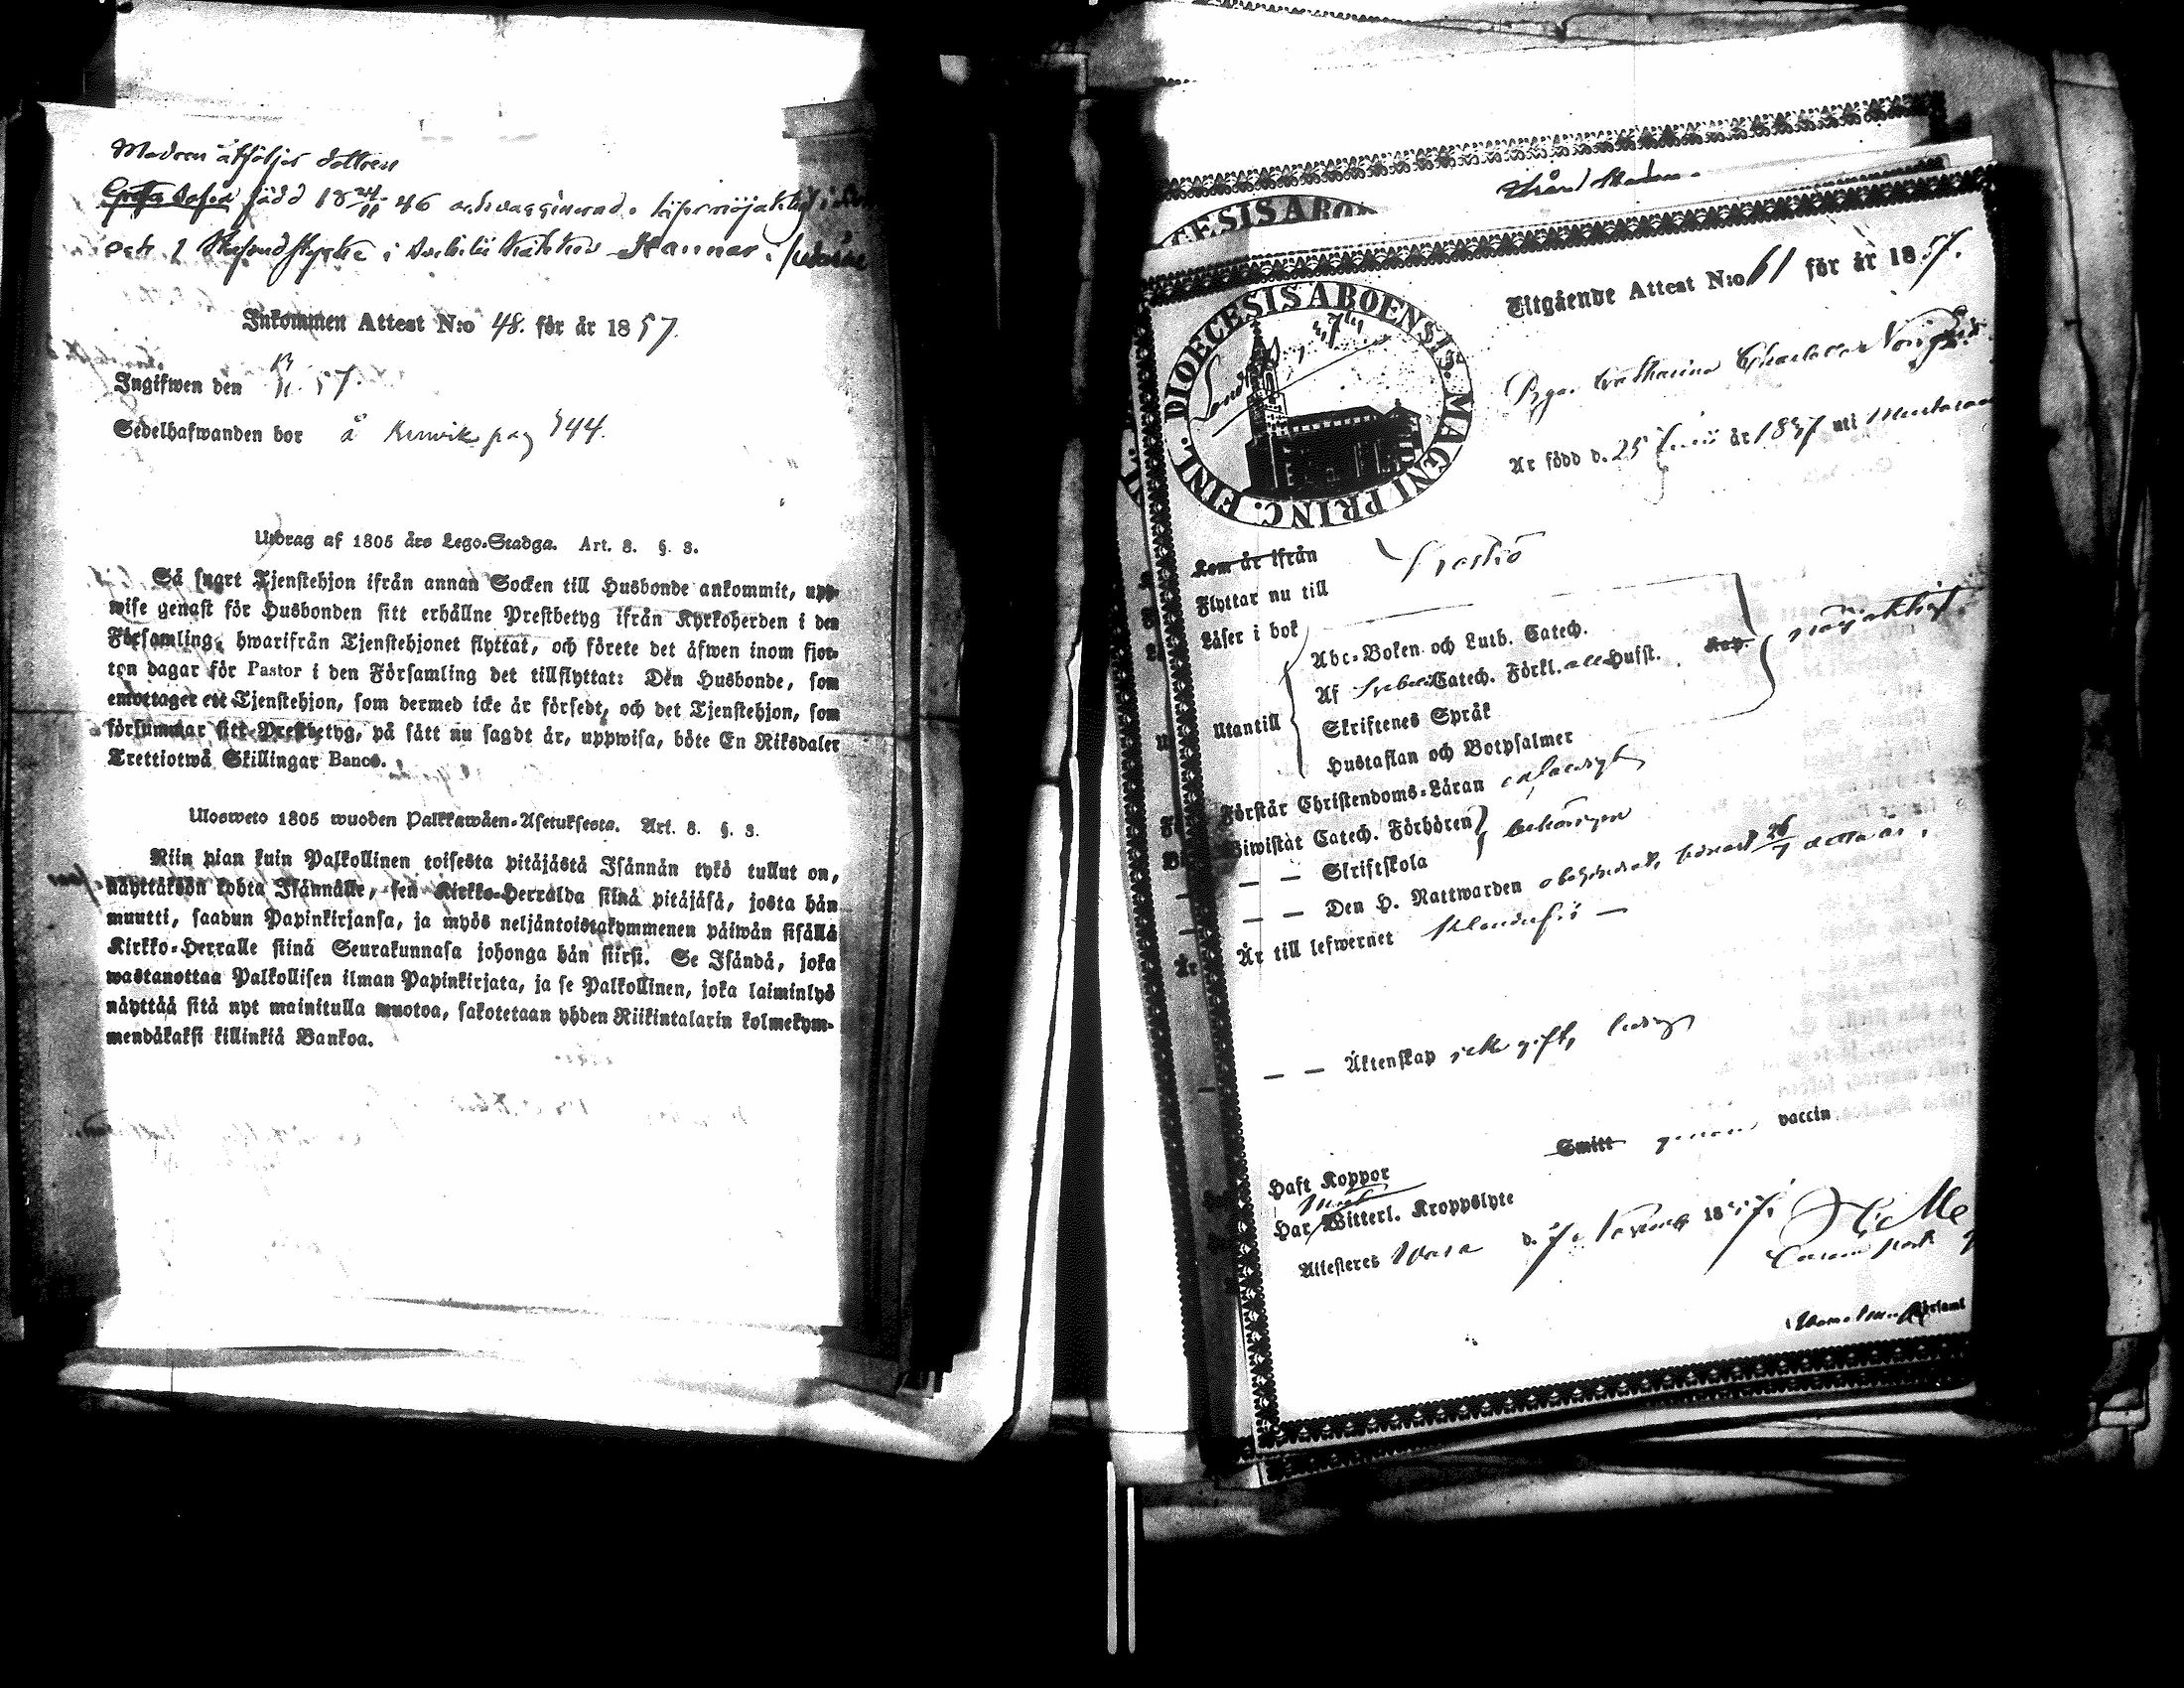 Modren åtföljes dottren
Greta Sofia född 18 24/11 46 och vaccinerad. läser nöjaktigt i
och 1 Hufvudstycke i
Inkommen Attest N:o 48. för år 1857.
Ingifwen den 13/11 57.
Sedelhafwanden bor å pag 144.
Utdrag af 1805 års Lego-Stadga. Art. 8. §. 3.
Så snart Tjenstehjon ifrån annan Socken till Husbonde ankommit, upp-
wise genast för Husbonden sitt erhållne Prestbetyg ifrån Kyrkoherden i den
Församling, hwarifrån Tjenstehjonet flyttat, och förete det åfwen inom fjor-
ton dagar för Pastor i den Församling det tillflyttat: Den Husbonde, som
emottager ett Tjenstehjon, som dermed icke är försedt, och det Tjenstehjon, som
försummar sitt Prestbetyg, på sätt nu sagdt är, uppwisa, böte En Riksdaler
Trettiotwå Skillingar Banco.
Ulosweto 1805 wuoden Palkkawäen-Asetuksesta. Art. 8. §. 3.
Niin pian kuin Palkollinen toisesta pitäjästä Isännän tykö tullut on,
näyttäkään kohta Isännälle, sen Kirkko-Herralda siinä pitäjäsä, josta hän
muutti, saadun Papinkirjansa, ja myös neljäntoistakymmenen päiwän sisällä
Kirkko-Herralle siinä Seurakunnasa johonga hän siirsi. Se Isändä, joka
wastanottaa Palkollisen ilman Papinkirjata, ja se Palkollinen, joka laiminlyö
näyttää sitä nyt mainitulla muotoa, sakotetaan yhden Riikintalarin kolmekym-
mendäkaksi killinkiä Bankoa.
DIOECESIS ABOENSIS. MAGNI PRINC. FINL.
Utgående Attest N:o 61 för år 1857.
Pga. Catharina Charlotta
Är född d. 25 Junii år 1837 uti
Kom är ifrån
Flyttar nu till
Läser i bok
Utantill
Abc-Boken och Luth. Catech.
Af Svebelii Catech. Förkl. alla Husst. nöjaktigt.
Skriftenes Språk
Hustaflan och Botpsalmer
Förstår Christendoms-Läran
Biwistat Catech. Förhören behörigen
— — Skriftskola
— — Den H. Nattwarden obehindrad, senast 26/7 detta år.
Är till lefwernet
— — Äktenskap icke gift, ledig
Smitt genom vaccin
Haft Koppor
Har Witterl. Kroppslyte
Attesteres Wasa d. 7 1857.